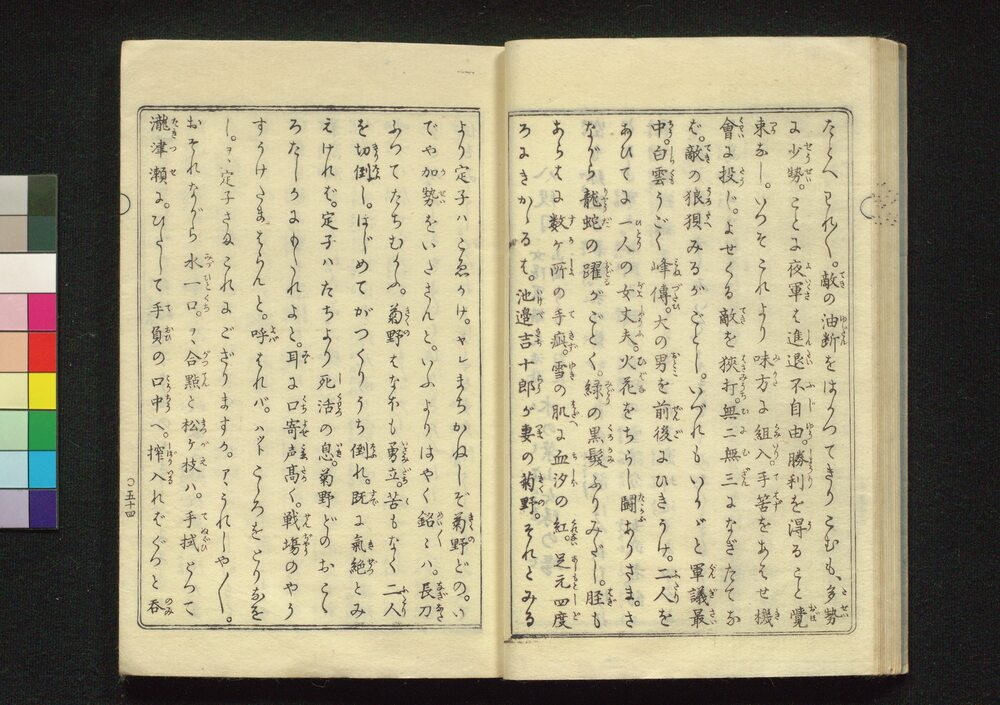 たとへわれ〳〵。敵の油断をはかつてきりこむも、多勢
に少勢。ことに夜軍は進退不自由。勝利を得ること覚
束なし。いつそこれより味方に組入。手筈をあはせ機
會に投じ。よせくる敵を狭打。無二無三になぎたてな
ば。敵の狼狽みるがごとし。いづれもいかゞと軍議最
中。白雲うごく峰傳。大の男を前後にひきうけ。二人を
あひてに一人の女丈夫。火花をちらし闘ありさま。さ
ながら龍蛇の躍がごとく。緑の黒髪ふりみだし。脛も
あらはに数ヶ所の手疵。雪の肌に血汐の紅。足元四度
ろにきかゝるは。池邉吉十郎が妻の菊野。それとみる
より定子ハこゑかけ。ヤレまちかねしぞ菊野どの。い
でや加勢をいたさんと。いふよりはやく銘〻ハ。長刀
ふつてたちむかふ。菊野はなほも勇立苦もなく二人
を切倒し。はじめてがつくりうち倒れ。既に氣絶とみ
えければ。定子ハたちより死活の息。菊野どのおこゝ
ろたしかにもたれよと。耳に口寄声髙く。戦塲のやう
すうけたまはらんと。呼はれバ。ハットこゝろをとりなを
し。ヲヽ定子さぬこれにござりますか。アヽうれしや〳〵。
おそれながら水一口。ヲヽ合點と松ヶ枝ハ。手拭とつて
瀧津瀬に。ひたして手負の口中へ。搾入ればぐつと呑
〇五十四